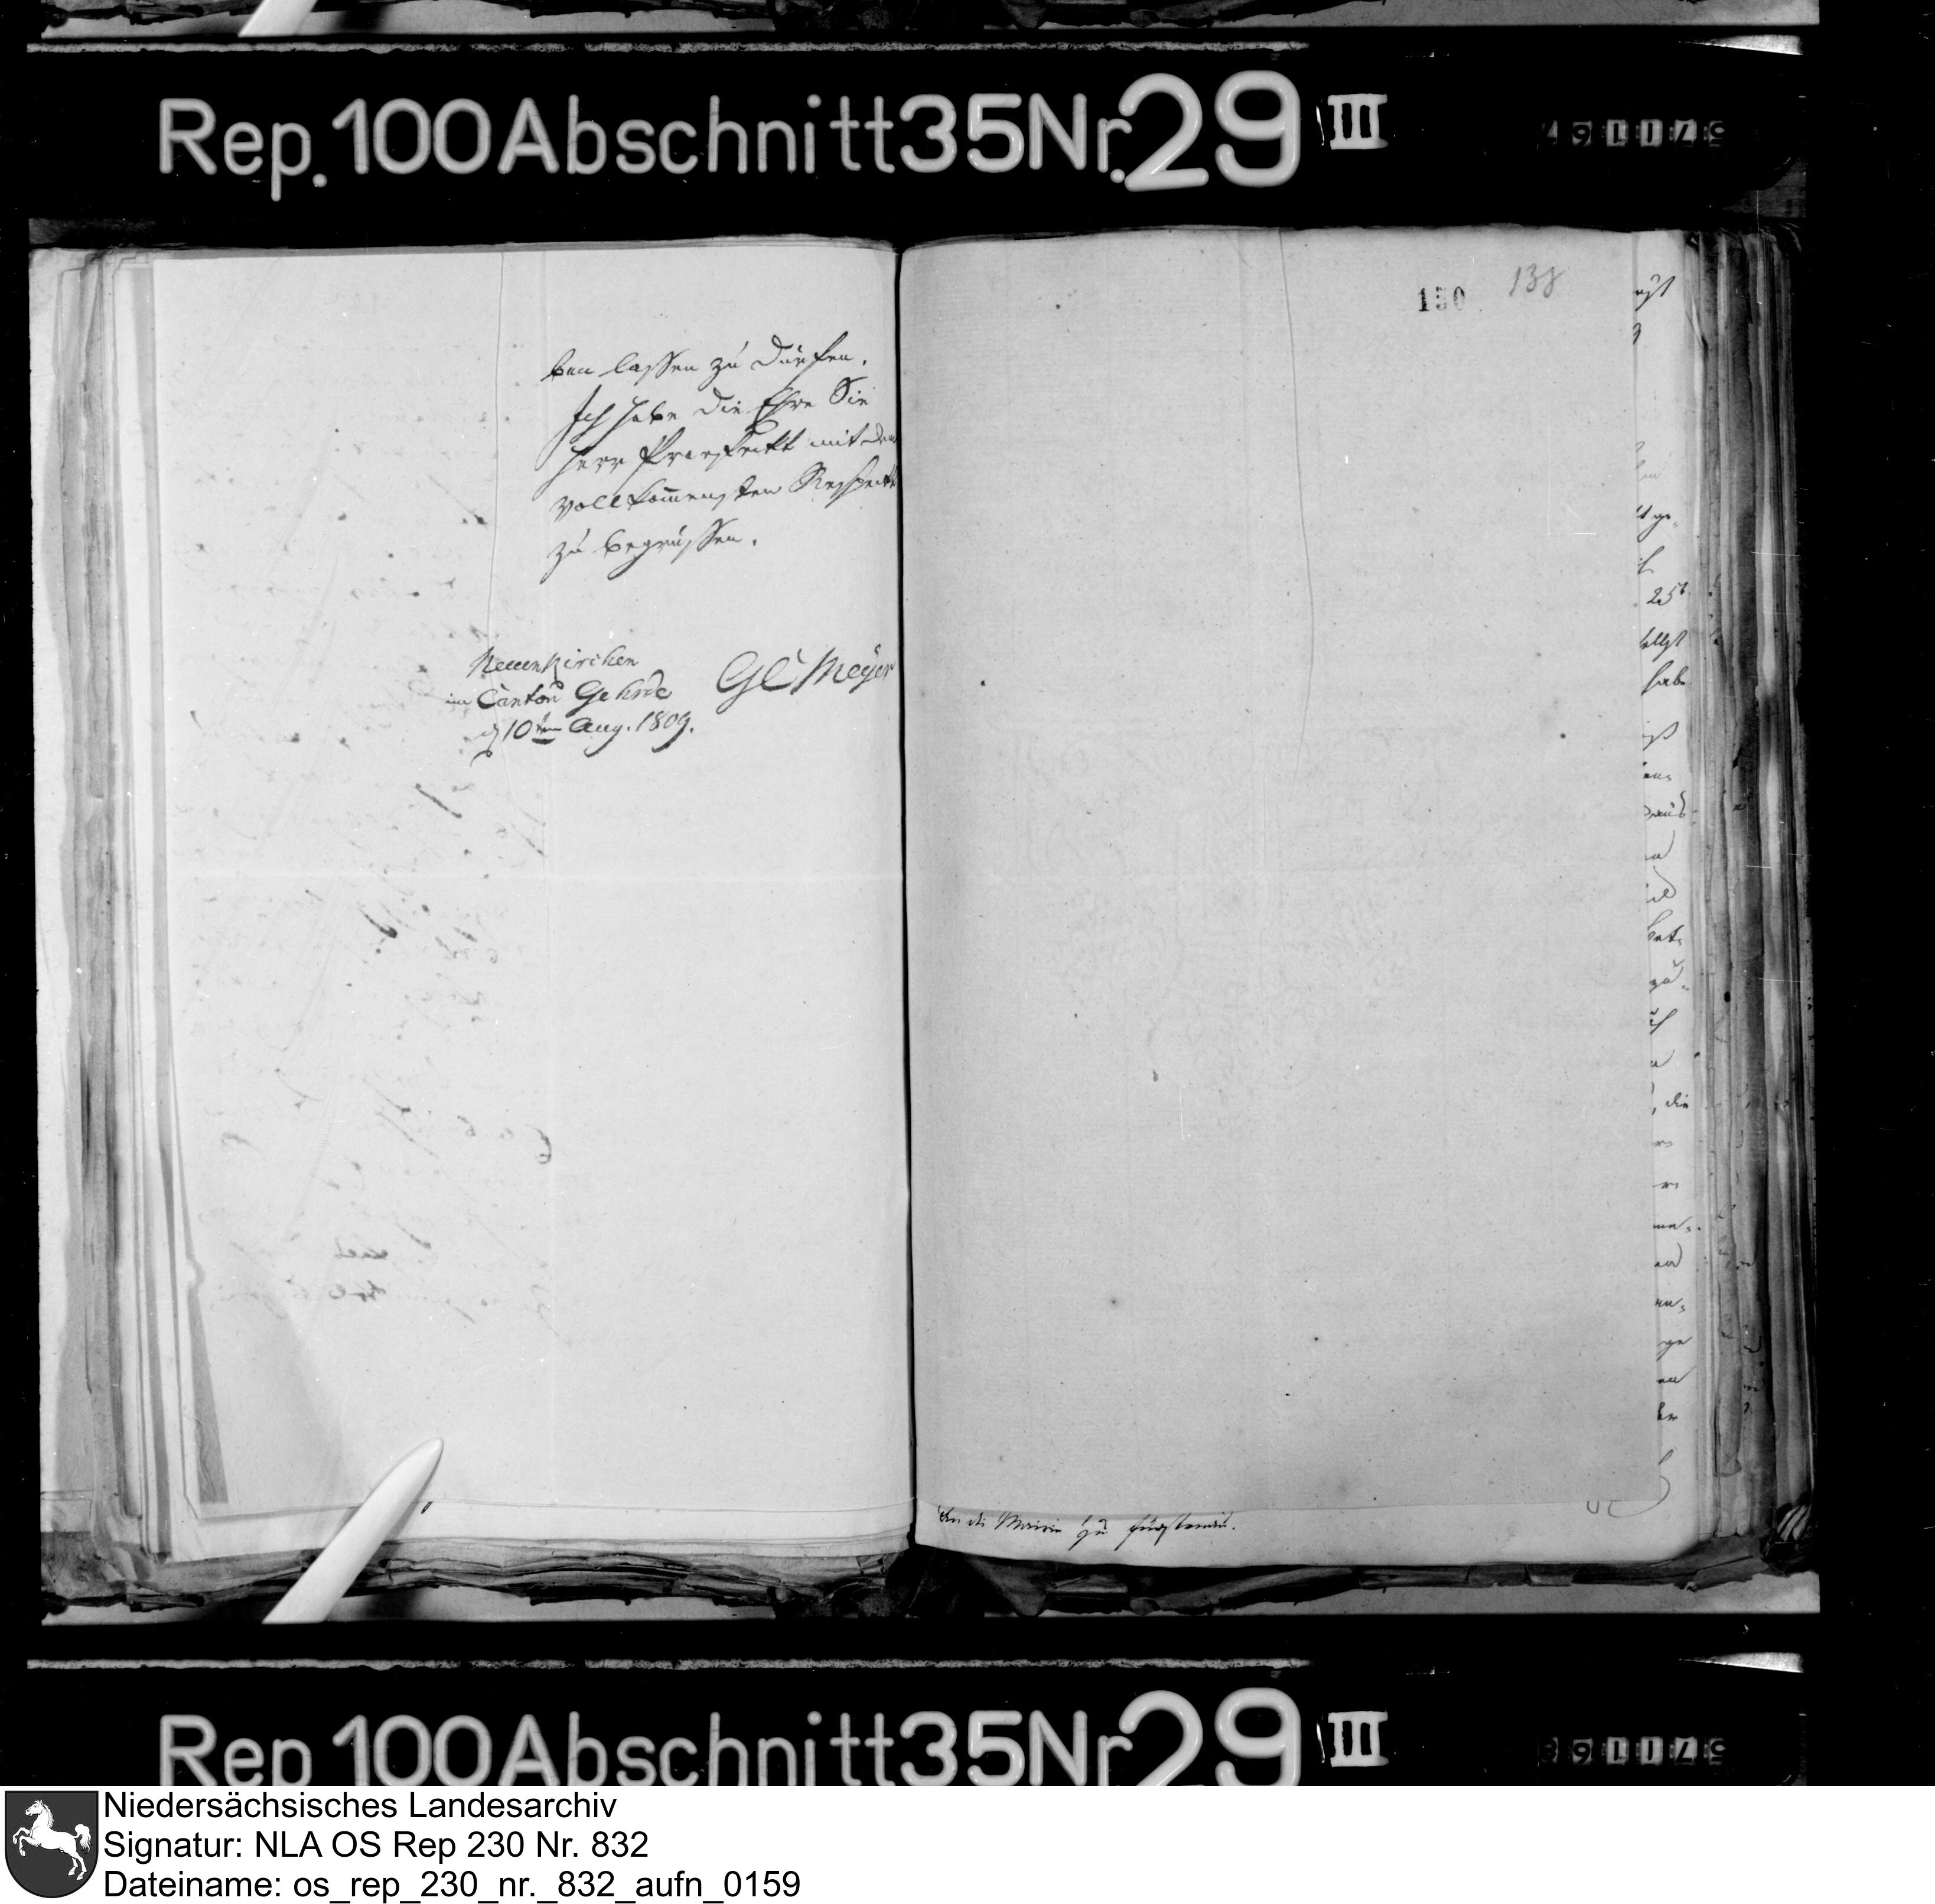 Rep. 100 Abschnitt 35 Nr. 29 III
ben lassen zu dürfen.
Ich habe die Ehre Sie
Herr Praefeckt mit dem
vollkom̄ensten Respeckt
zu begrüssen.
Neuenkirchen
im Canton Gehrde
d 10ten Aug. 1809.
GC Meyer
150
138
25t
selbst
hab
die
An die Mairie zu Fürstenau.
Rep 100 Abschnitt 35 Nr 29 III
Niedersächsisches Landesarchiv
Signatur: NLA OS Rep 230 Nr. 832
Dateiname: os_rep_230_nr._832_aufn_0159